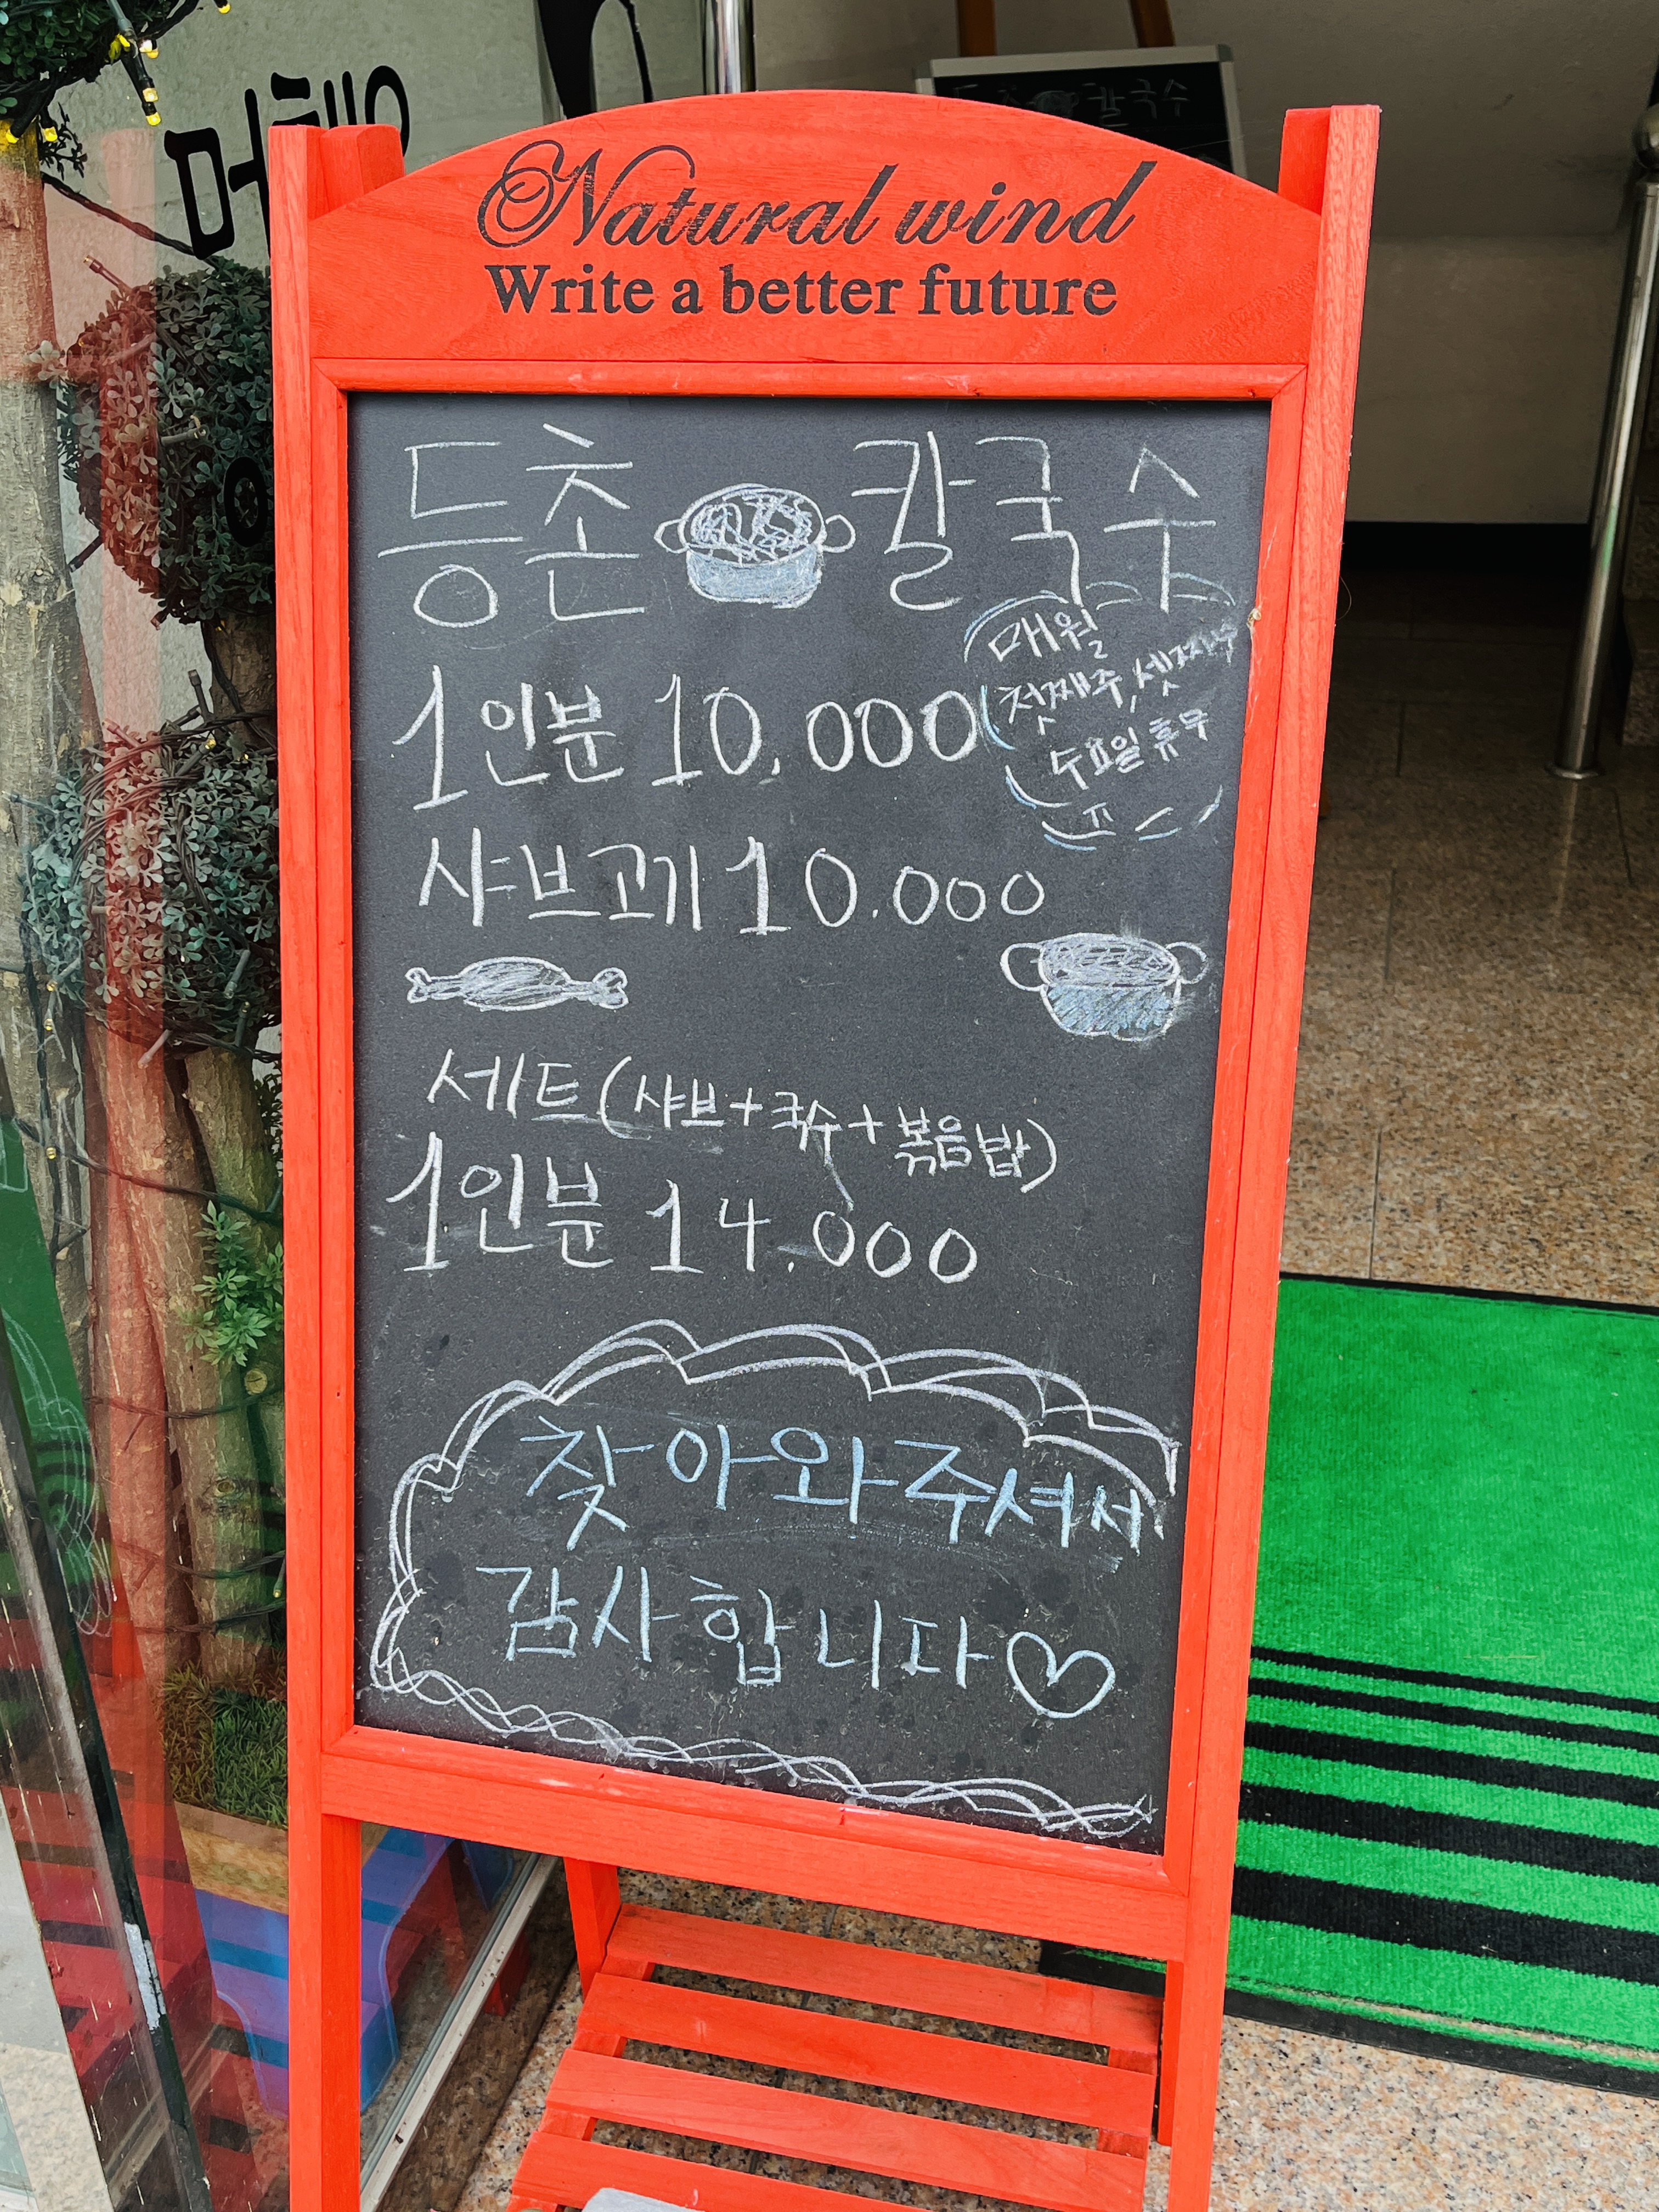 Natural wind
Write a better future
등촌 칼국수
매월
첫째주, 셋째주
수요일 휴무
1인분 10,000
샤브고기 10.000
세트(샤브+국수+볶음밥)
1인분 14.000
찾아와주셔서
감사합니다♡
칼국수